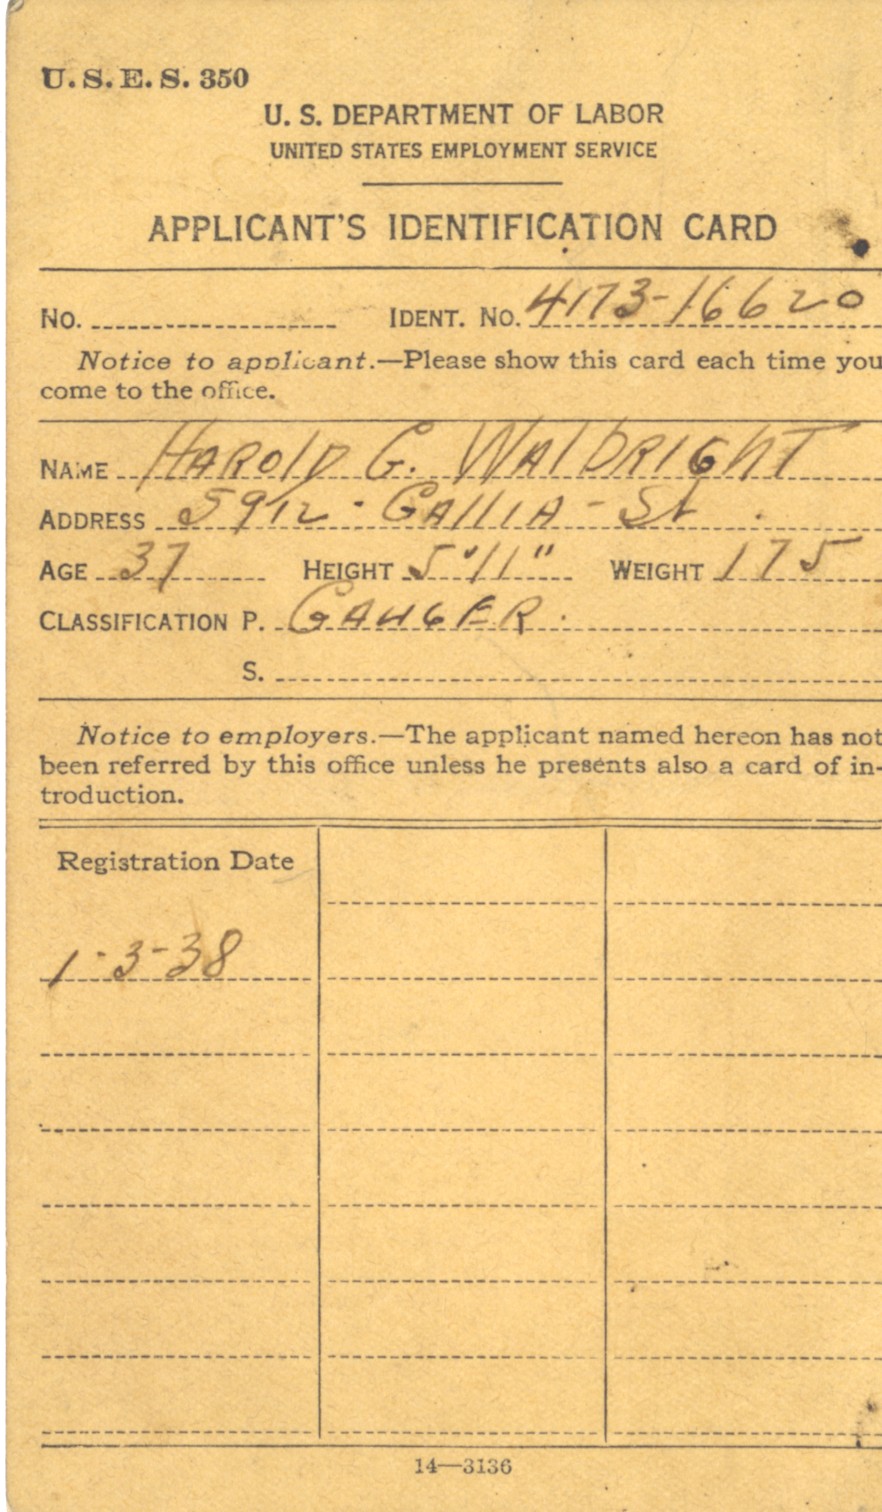 U. S. E. S. 350
U. S. DEPARTMENT OF LABOR
UNITED STATES EMPLOYMENT SERVICE
APPLICANT'S IDENTIFICATION CARD
No. IDENT. No. 4173-16620
Notice to applicant.—Please show this card each time you
come to the office.
NAME HAROLD G. WALBRIGHT
ADDRESS 5912 - GALLIA - St.
AGE 37 HEIGHT 5'11" WEIGHT 175
CLASSIFICATION P. GAUGER.
S.
Notice to employers.—The applicant named hereon has not
been referred by this office unless he presents also a card of in-
troduction.
Registration Date
1-3-38
14—3136